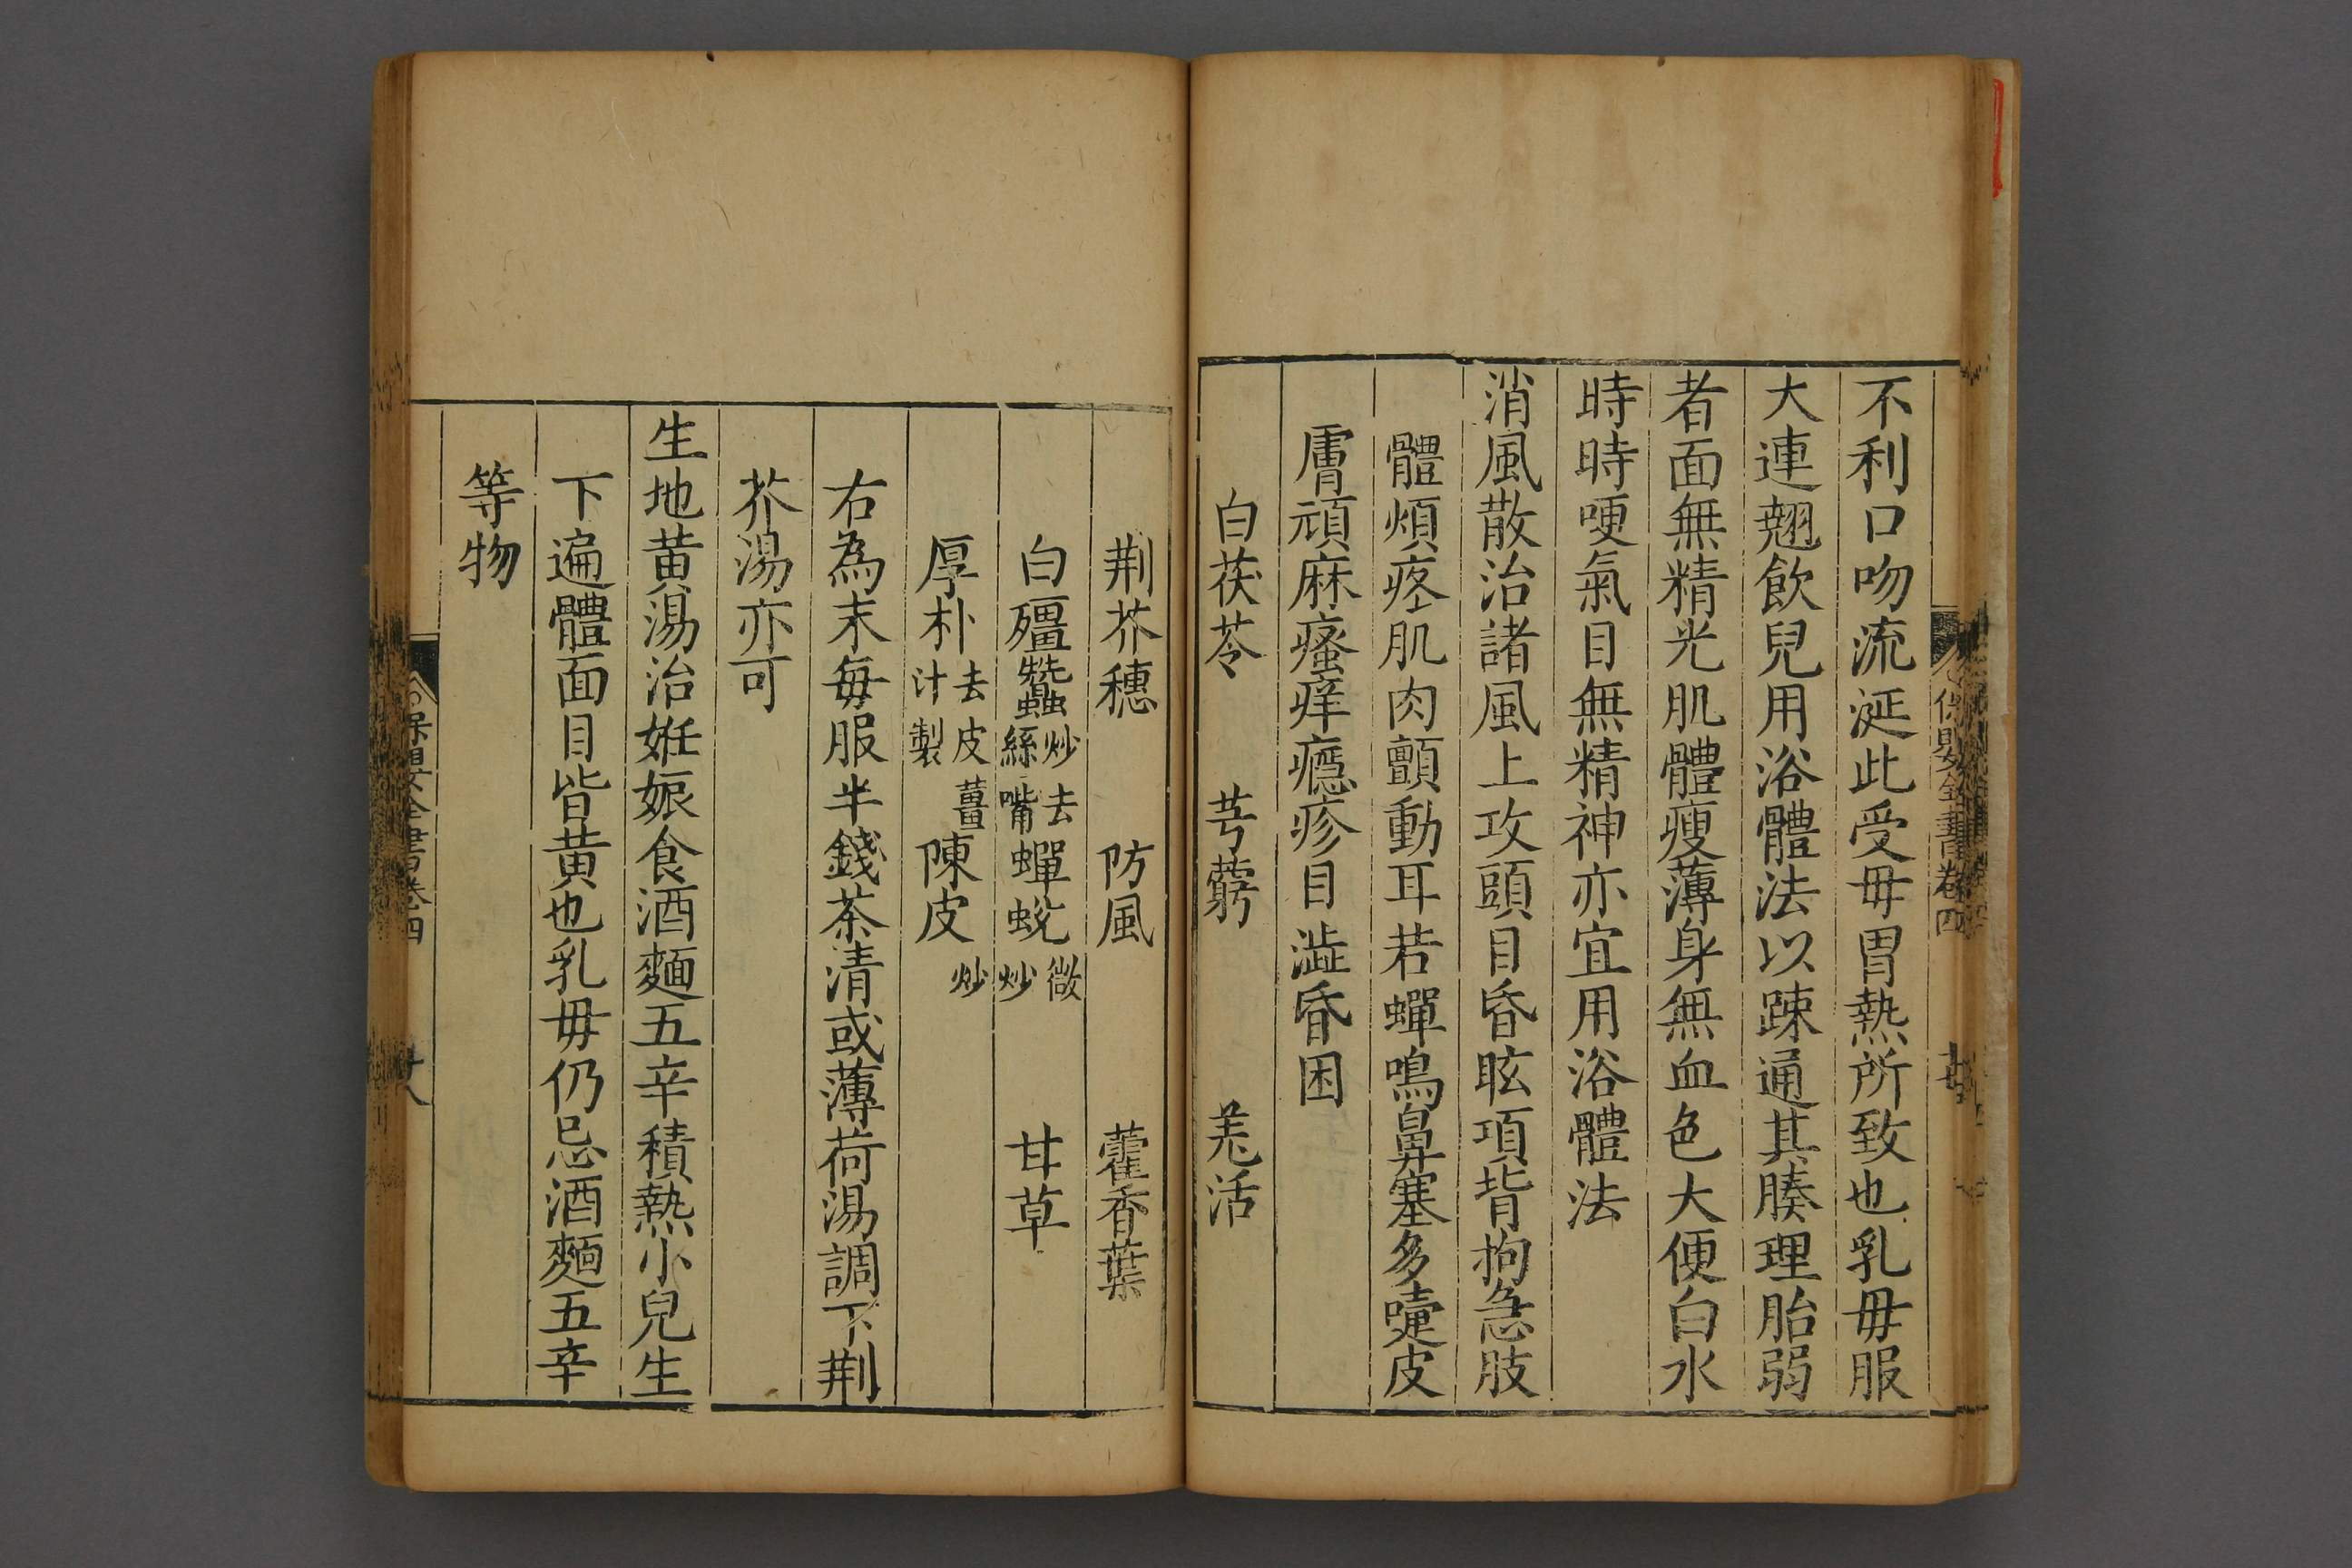 不利口吻流涎此受毋胃熱所致也乳毋服
大連翹飲兒用浴體法以踈通其腠理胎弱
者面無精光肌體瘦薄身無血色大便白水
時時哽氣目無精神亦宜用浴體法
消風散治諸風上攻頭目昏眩項背拘急肢
體煩疼肌肉顫動耳若蟬鳴鼻塞多嚏皮
膚頑麻瘙痒癮疹目澁昏困
白茯苓 芎藭 羌活
保嬰全書卷四
荆芥穗 防風 藿香葉
白殭蠶炒去絲嘴 蟬蛻微炒 甘草
厚朴去皮薑汁製 陳皮炒
右為末每服半錢茶清或薄荷湯調下荆
芥湯亦可
生地黄湯治姙娠食酒麵五辛積熱小兒生
下遍體面目皆黄也乳毋仍忌酒麵五辛
等物
保嬰全書卷四